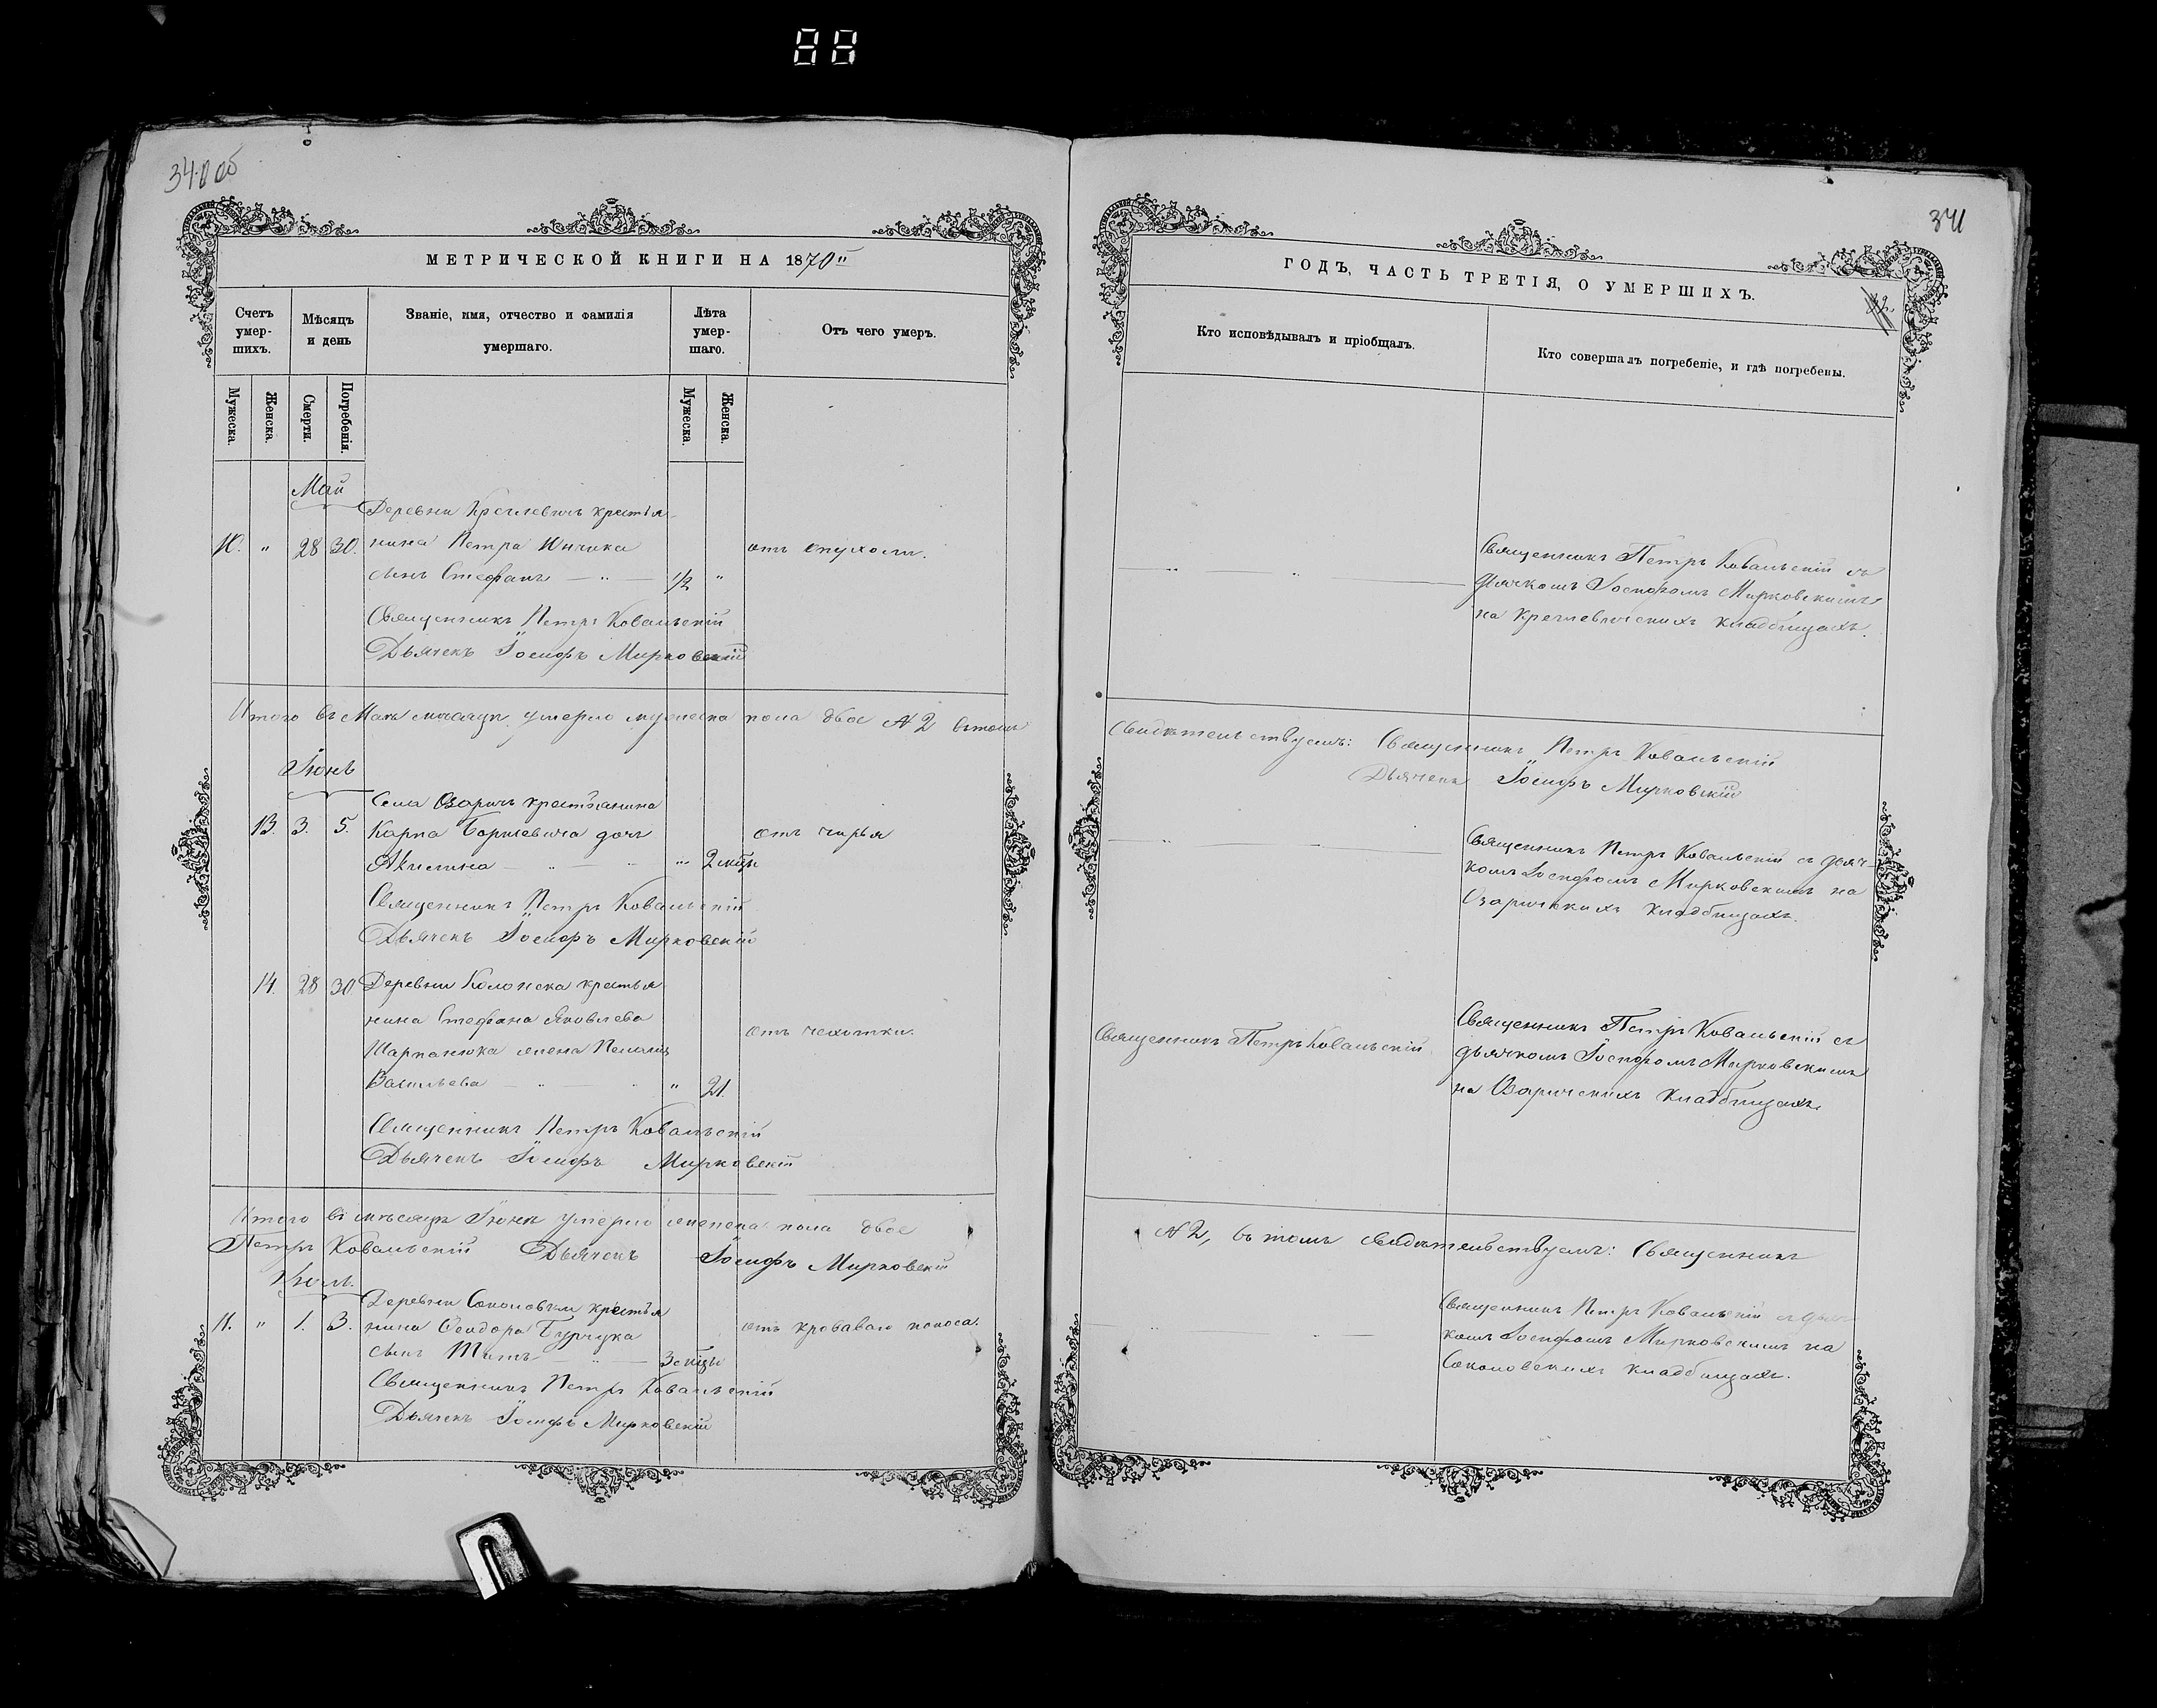 340 об
МЕТРИЧЕСКОЙ КНИГИ НА 1870"
Счетъ умер-шихъ.
Мѣсяцъ и день
Званіе, имя, отчество и фамилія умершаго.
Лѣта умер-шаго.
Отъ чего умеръ.
Мужеска.
Женска.
Смерти.
Погребенія.
Мужеска.
Женска.
Май
Деревни крестья-
10. " 28 30. нина Петра отъ опухоли.
сынъ Стефанъ — " — 1/2 "
Священникъ Петръ Ковальскій
Дьячекъ Іосифъ Мирковскій
Итого въ Маѣ мѣсяцѣ умерло мужеска пола двое № 2 въ томъ
Іюнь
Села Озаричъ крестьянина
13. 3. 5. Карпа дочь отъ чирья
Акилина — " — " 2 мѣсц
Священникъ Петръ Ковальскій
Дьячекъ Іосифъ Мирковскій
14. 28 30 Деревни Колонска крестья
нина Стефана Яковлева
жена отъ чахотки.
Васильева — " — " 21.
Священникъ Петръ Ковальскій
Дьячекъ Іосифъ Мирковскій
Итого въ мѣсяцѣ Іюнѣ умерло женска пола двое
Петръ Ковальскій Дьячекъ Іосифъ Мирковскій
Іюль.
Деревни крестья
11. " 1. 3. нина Ѳеодора отъ кроваваго поноса.
сынъ Титъ — " — 3 мѣсц
Священникъ Петръ Ковальскій
Дьячекъ Іосифъ Мирковскій
341
ГОДЪ, ЧАСТЬ ТРЕТІЯ, О УМЕРШИХЪ.
Кто исповѣдывалъ и пріобщалъ.
Кто совершалъ погребеніе, и гдѣ погребены.
Священникъ Петръ Ковальскій съ
— " — дьячкомъ Іосифомъ Мирковскимъ
на кладбищахъ.
Свидѣтельствуемъ: Священникъ Петръ Ковальскій
Дьячекъ Іосифъ Мирковскій
Священникъ Петръ Ковальскій съ дьяч
комъ Іосифомъ Мирковскимъ на
Озаричскихъ кладбищахъ.
Священникъ Петръ Ковальскій съ
Священникъ Петръ Ковальскій дьячкомъ Іосифомъ Мирковскимъ
на Озаричскихъ кладбищахъ.
№ 2, въ томъ свидѣтельствуемъ: Священникъ
Священникъ Петръ Ковальскій съ дьяч
комъ Іосифомъ Мирковскимъ на
Соколовскихъ кладбищахъ.